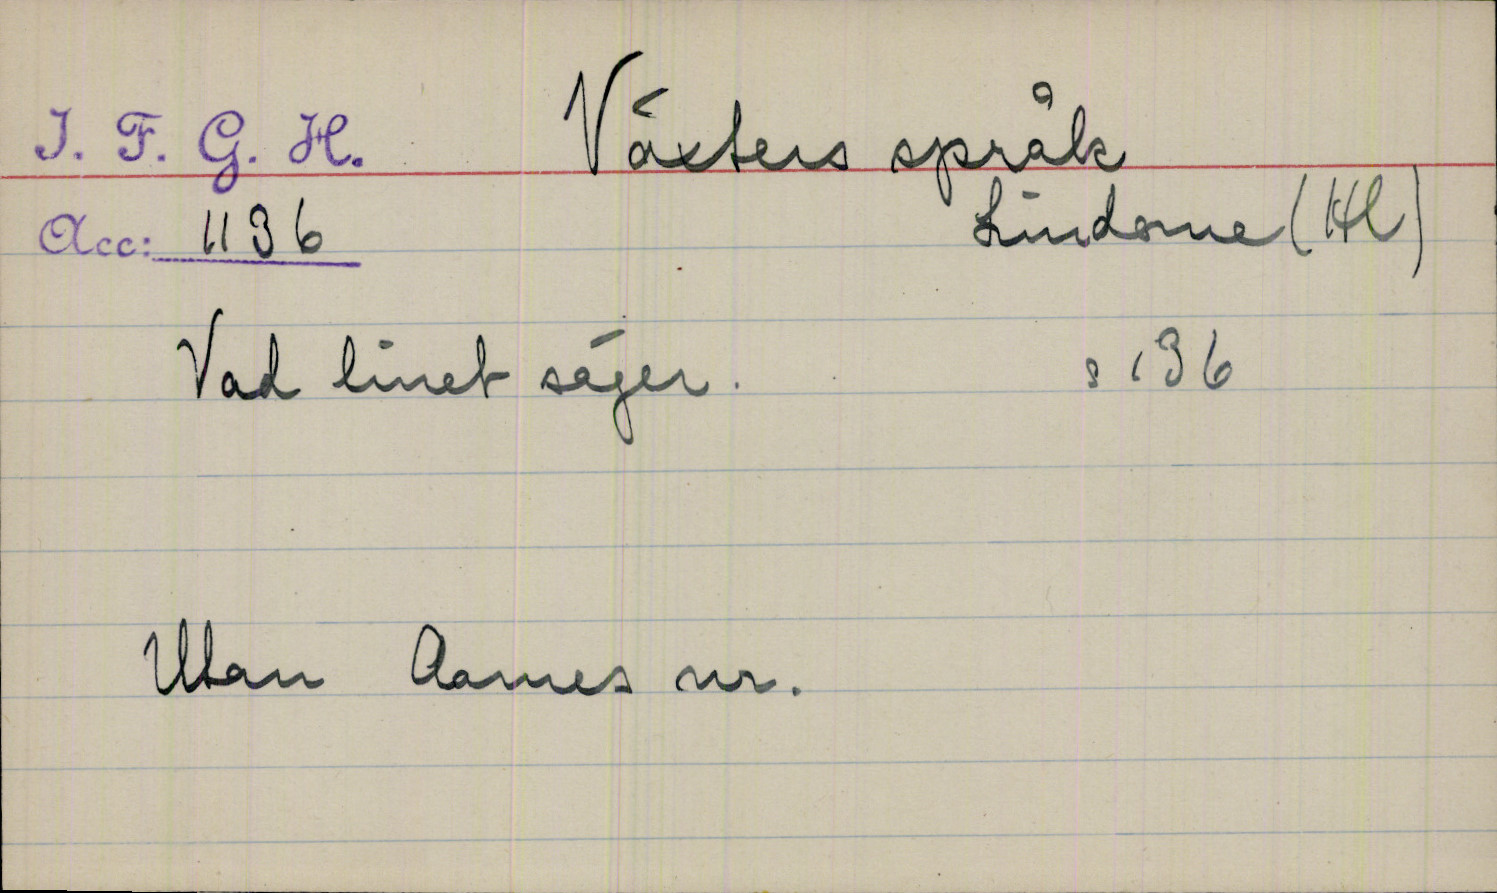 I. F. G. H. Växters språk
Acc: 1136 Lindome (Hl)
Vad linet säger. s 136
Utan Aarnes nr.